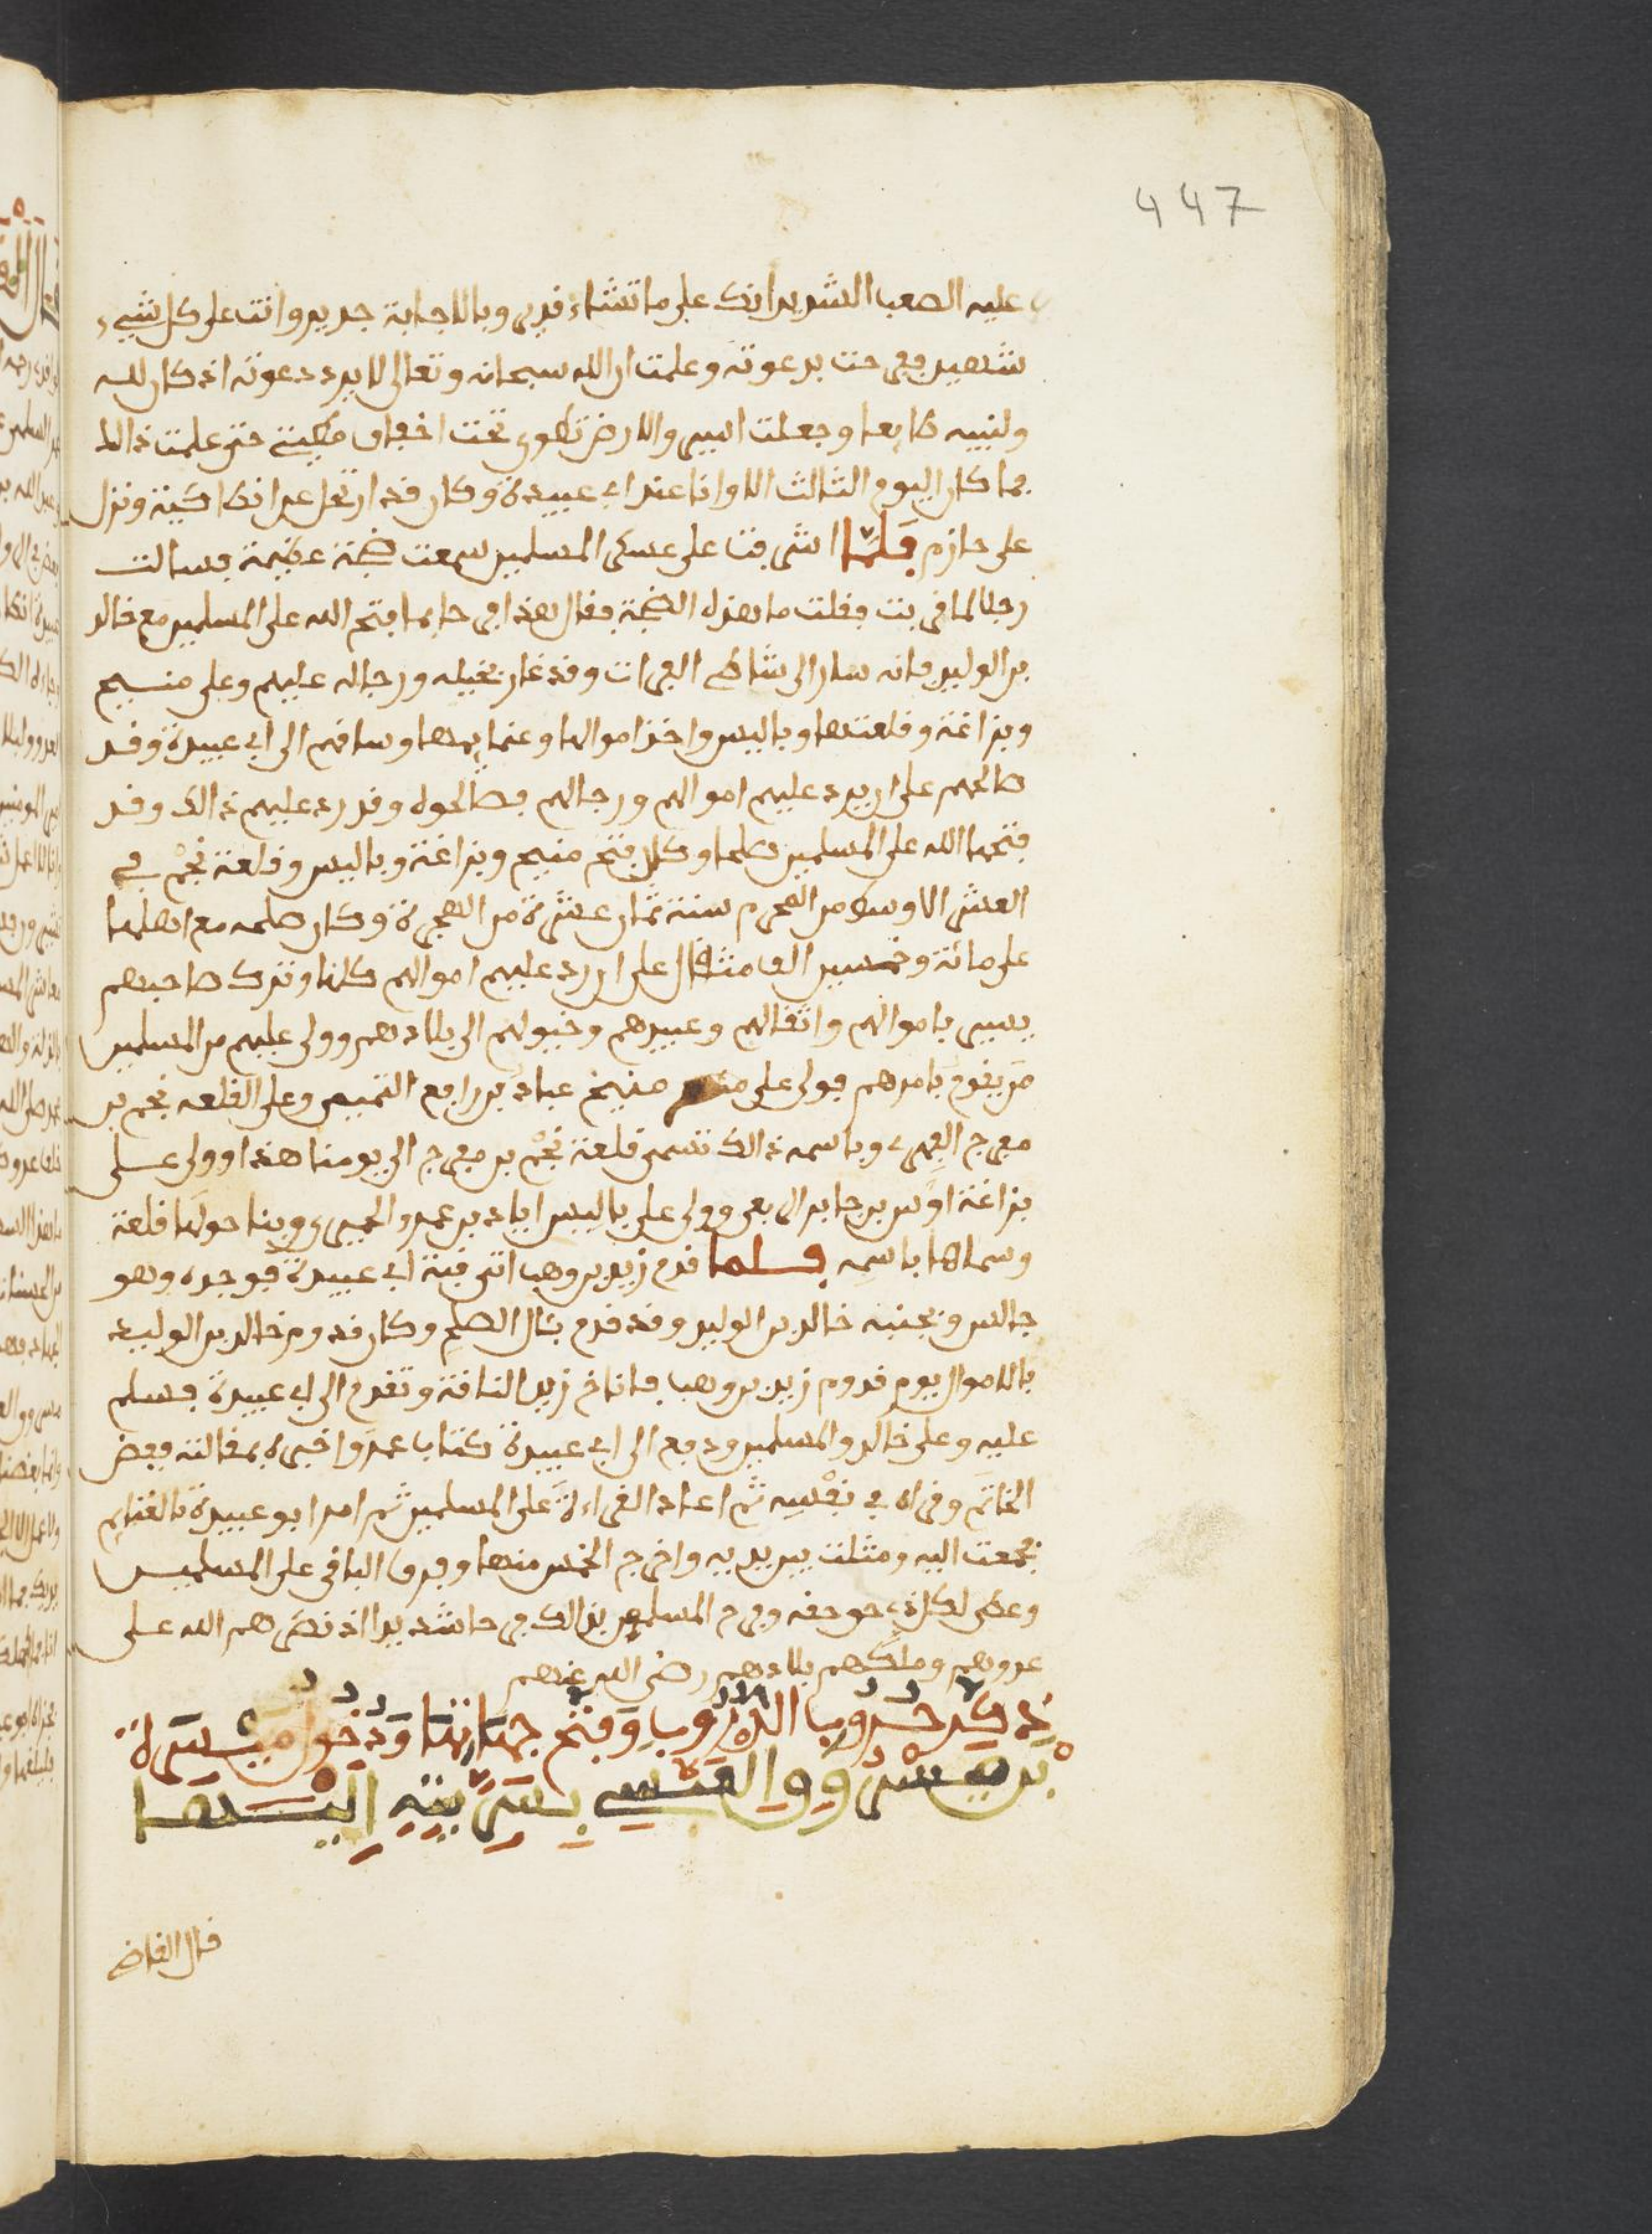 447
عليه الصعب الشديد انك على ما تشاء قدير وبالاجابة جدير وانت على كل شيء
شهيد ففرحت بدعوته وعلمت ان الله سبحانه وتعالى لا يرد دعوته اذ كان لله
ولنبيه طايعا وجعلت اسير والارض تطوى تحت اخفاف مطيتي حتى علمت ذالك
فما كان اليوم الثالث الا وانا عند ابي عبيدة وكان قد ارتحل عن انطاكية ونزل
على حازم فلما اشرفت على عسكر المسلمين سمعت ضجة عظيمة فسالت
رجلا لما قربت فقلت ما هذه الضجة فقال هذا فرحا بما فتح الله على المسلمين مع خالد
بن الوليد فانه سار الى شاطئ الفرات وقد غار بخيله ورجاله عليهم وعلى منبج
وبزاغة وقلعتها وباليس واخذ اموالها وغنايمها وساقهم الى ابي عبيدة وقد
صالحهم على ان يرد عليهم اموالهم ورجالهم فصالحوه وقد رد عليهم ذالك وقد
فتحها الله على المسلمين صلحا وكان فتح منبج وبزاغة وباليس وقلعة نجم في
العشر الاوسط من المحرم سنة ثمان عشرة من الهجرة وكان صلحه مع اهلها
على مائة وخمسين الف مثقال على ان رد عليهم اموالهم كلها وترك صاحبهم
يسير باموالهم واثقالهم وعبيدهم وخيولهم الى بلادهم وولى عليهم من المسلمين
من يقوم بامرهم فولى على منبج عباد بن رابع التميمي وعلى القلعه نجم بن
مفرج الفهري وباسمه ذالك تسمى قلعة نجم بن مفرج الى يومنا هذا وولى على
بزاغة اوس بن جابر الربعي وولى على باليس اياد بن عمرو الحميري وبنا حولها قلعة
وسماها باسمه فلما قدم زيد بن وهب اتى قبة ابي عبيدة فوجده وهو
جالس وبجنبه خالد بن الوليد وقد قدم بمال الصلح وكان قدوم خالد بن الوليد
بالاموال يوم قدوم زيد بن وهب فاناخ زيد الناقة وتقدم الى ابي عبيدة فسلم
عليه وعلى خالد والمسلمين ودفع الى ابي عبيدة كتاب عمر واخبره بمقالته ففض
الخاتم وقراه في نفسه ثم اعاد القراءة على المسلمين ثم امر ابو عبيدة بالغنايم
فجمعت اليه ومثلت بين يديه واخرج الخمس منها وفرق الباقي على المسلمين
وعطى لكل ذي حق حقه وفرح المسلمين بذالك فرحا شديدا اذ نصرهم الله على
عدوهم وملكهم بلادهم رضي الله عنهم
ذكر حروب الدروب وفتح جهاتها ودخول ميسرة
بن مسروق العبسي بسريته اليها
قال القاض